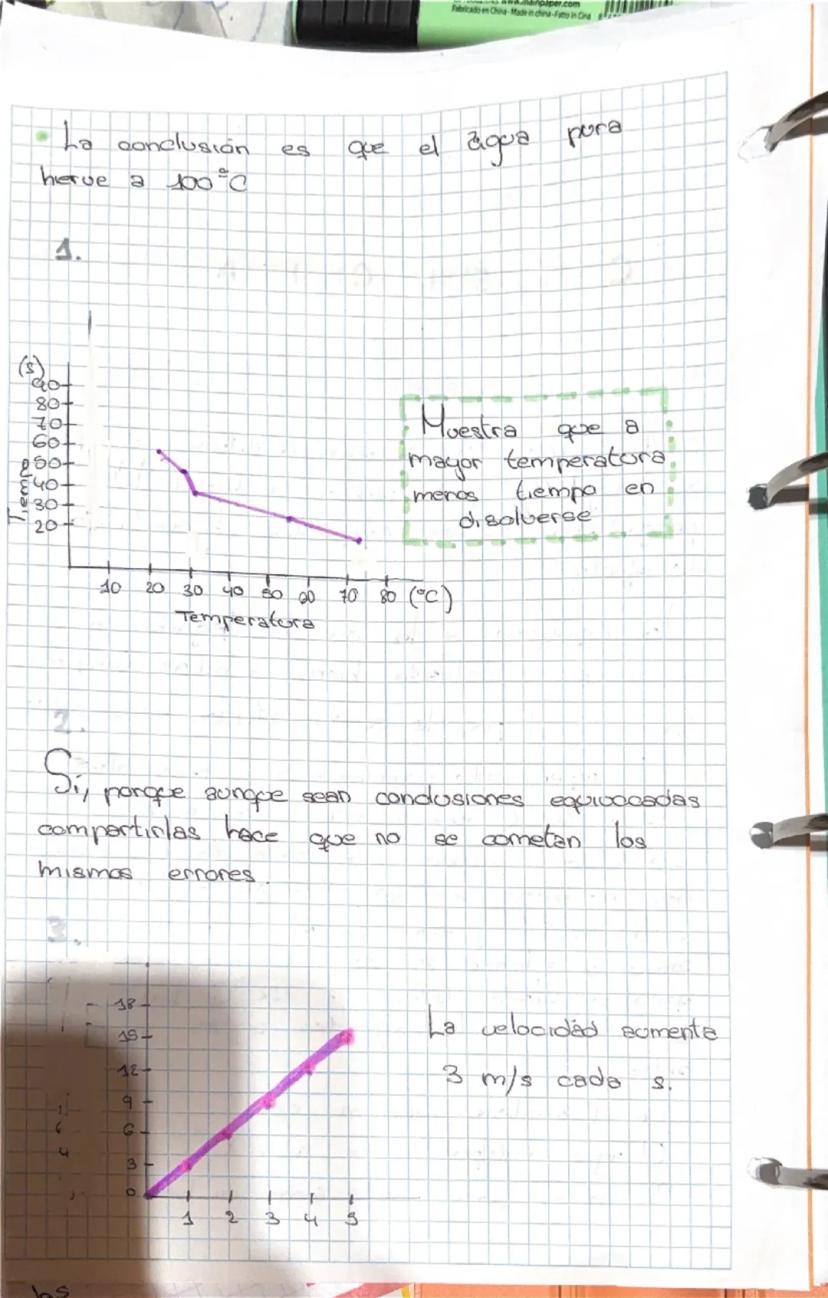 www.mainpaper.com
Fabricado en China - Made in china - Fatto in Cina
La conclusión es que el agua pura
hierve a 100°C
1.
(s)
90
80
70
60
50
40
30
20
Tiempo
10 20 30 40 50 60 70 80 (°C)
Temperatura
Muestra que a
mayor temperatura
menos tiempo en
disolverse
2.
Sí, porque aunque sean conclusiones equivocadas
compartirlas hace que no se cometan los
mismos errores.
3.
18
15
12
9
6
3
0
1 2 3 4 5
La velocidad aumenta
3 m/s cada s.